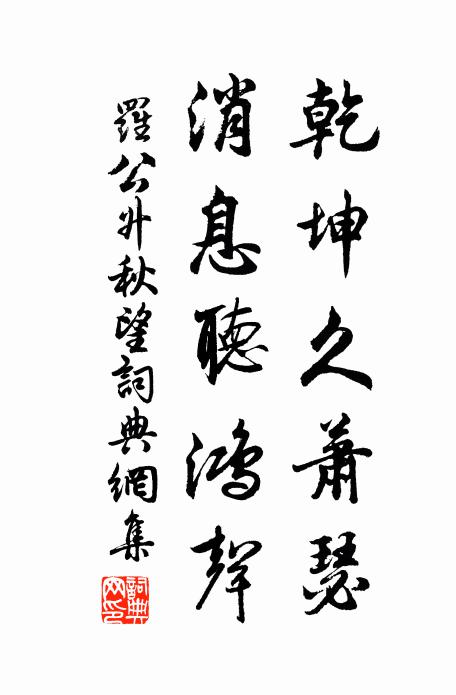 乾坤久蕭瑟
消息聽鴻聲
羅公升秋望詞典網集
詞典網印